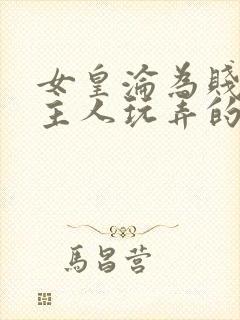 女皇淪為賤
主人玩弄的
馬昌营